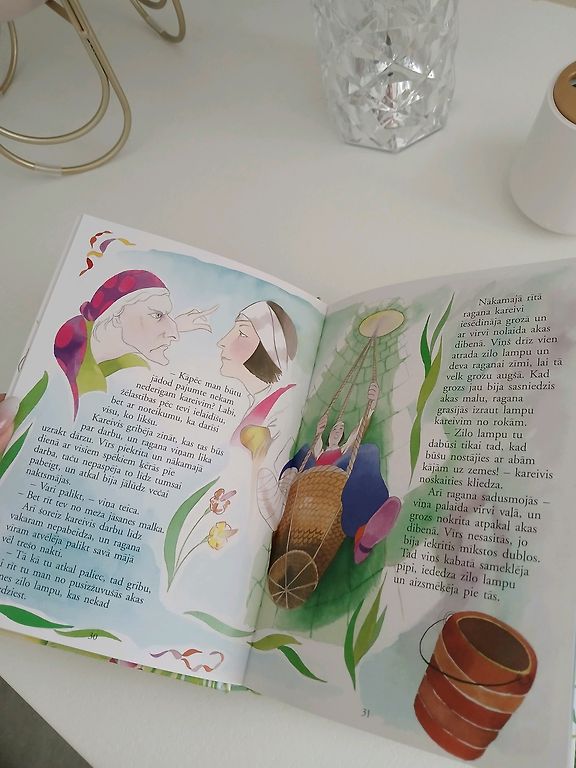 – Kāpēc man būtu
jādod pajumte nekam
nederīgam kareivim? Labi,
žēlastības pēc tevi ielaidīšu,
bet ar noteikumu, ka darīsi
visu, ko likšu.
Kareivis gribēja zināt, kas tas būs
par darbu, un ragana viņam lika
uzrakt dārzu. Viņš piekrita un nākamajā
dienā ar visiem spēkiem ķērās pie
darba, taču nepaspēja to līdz tumsai
pabeigt, un atkal bija jālūdz večai
naktsmājas.
– Vari palikt, – viņa teica.
– Bet rīt tev no meža jāsanes malka.
Arī šoreiz kareivis darbu līdz
vakaram nepabeidza, un ragana
viņam atvēlēja palikt savā mājā
vēl trešo nakti.
– Tā kā tu atkal paliec, tad gribu,
rīt tu man no pusizzuvušās akas
zilo lampu, kas nekad
30
Nākamajā rītā
ragana kareivi
iesēdināja grozā un
ar virvi nolaida akas
dibenā. Viņš drīz vien
atrada zilo lampu un
deva raganai zīmi, lai tā
velk grozu augšā. Kad
grozs jau bija sasniedzis
akas malu, ragana
grasījās izraut lampu
kareivim no rokām.
– Zilo lampu tu
dabūsi tikai tad, kad
būšu nostājies ar abām
kājām uz zemes! – kareivis
noskaities kliedza.
Arī ragana sadusmojās –
viņa palaida virvi vaļā, un
grozs nokrita atpakaļ akas
dibenā. Viņš nesasitās, jo
bija iekritis mīkstos dubļos.
Tad viņš kabatā sameklēja
pīpi, iededza zilo lampu
un aizsmēķēja pie tās.
31